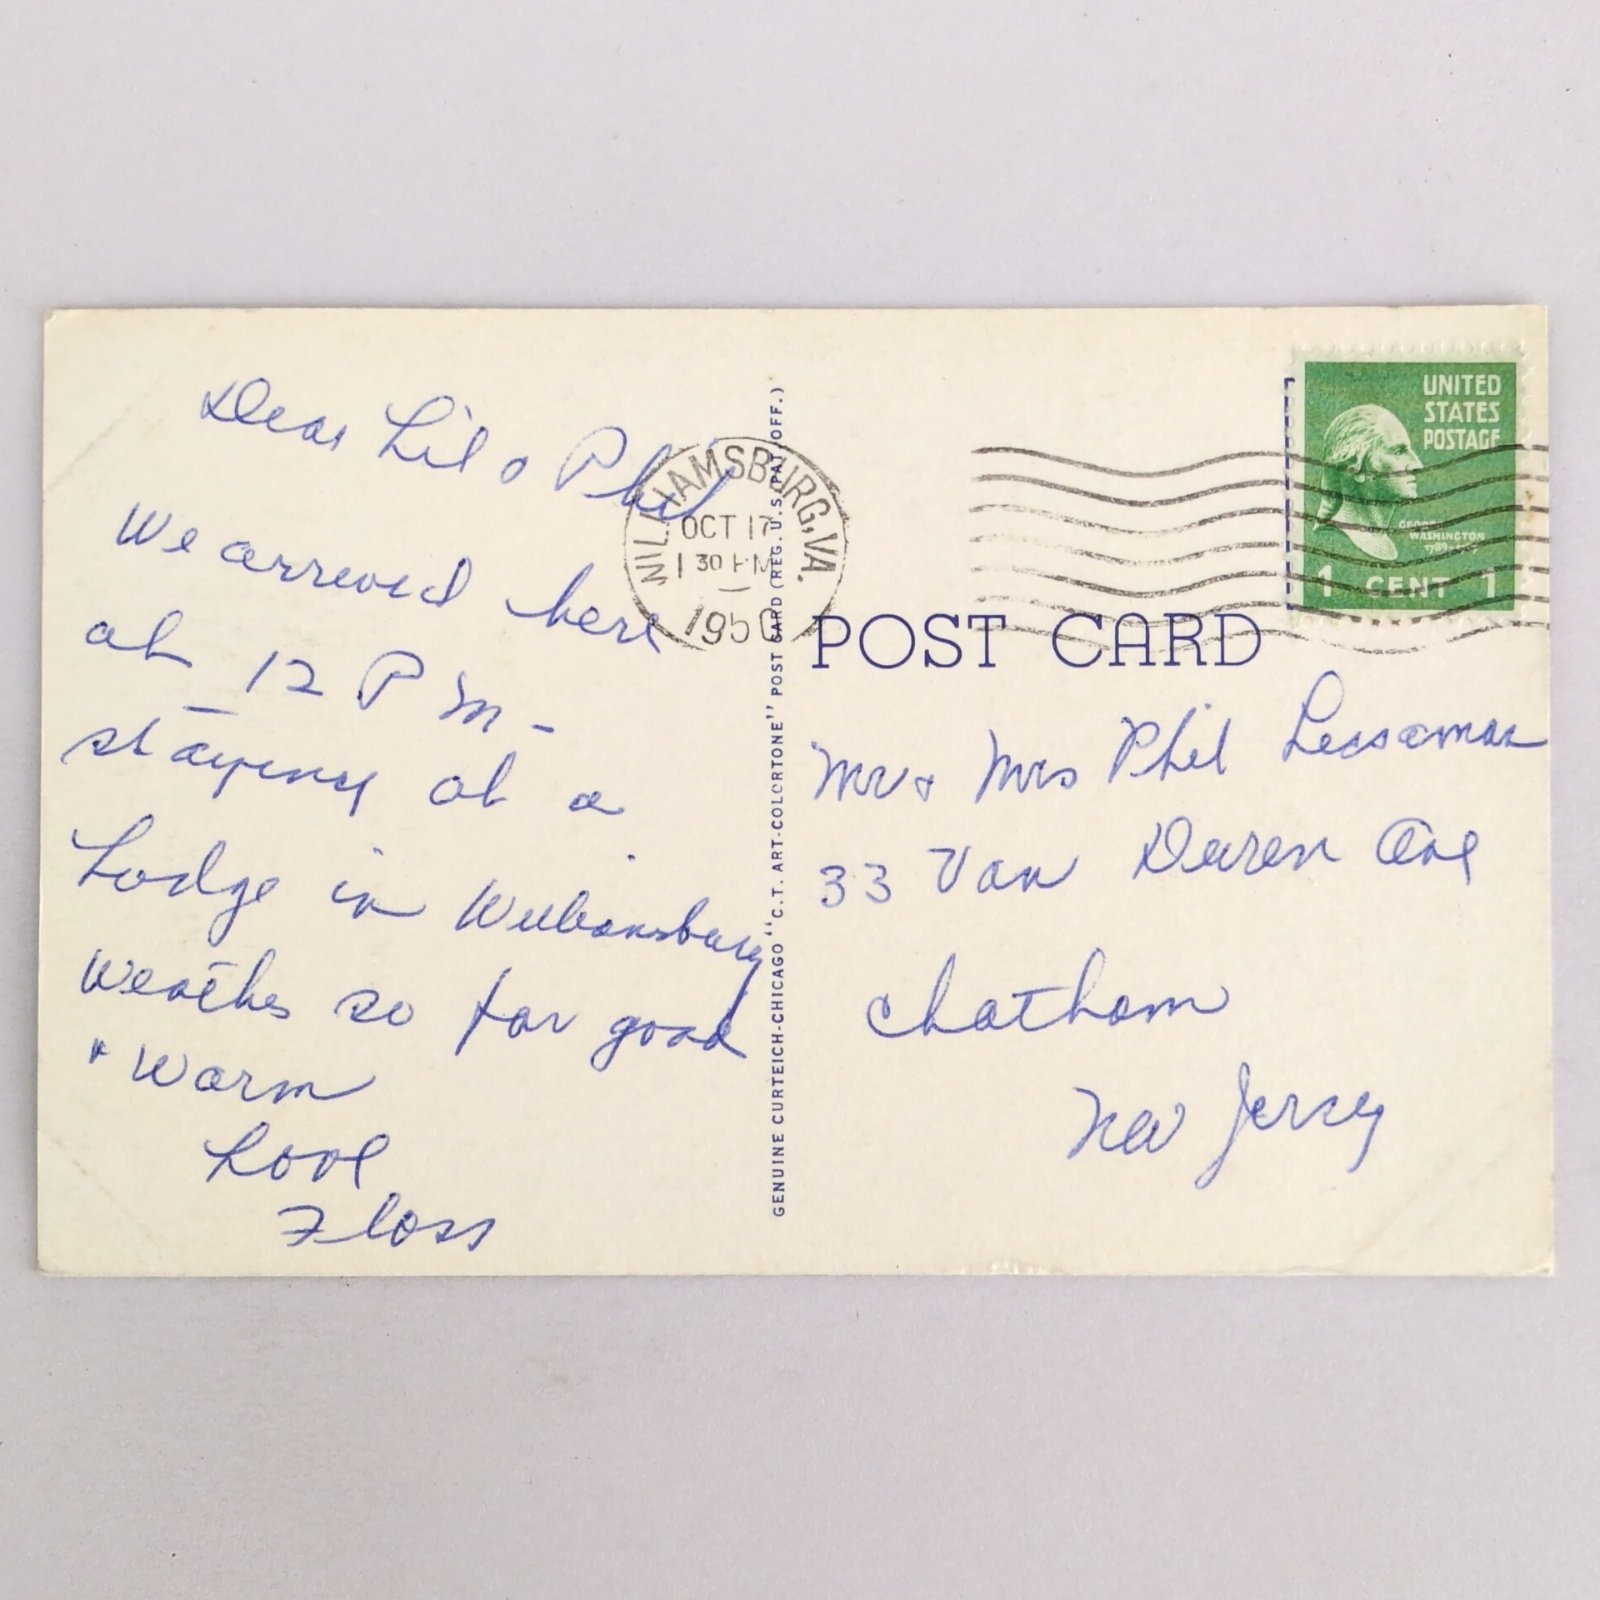 Dear Lil & Phil
We arrived here
at 12 P M -
staying at a
Lodge in Williamsburg
Weather so far good
& Warm
Love
Floss
WILLIAMSBURG, VA.
OCT 17
1 30 PM
1950
GENUINE CURTEICH-CHICAGO "C.T. ART-COLORTONE" POST CARD (REG. U.S. PAT. OFF.)
UNITED
STATES
POSTAGE
GEORGE
WASHINGTON
1 CENT 1
POST CARD
Mr & Mrs Phil
33 Van Duren Ave
Chatham
New Jersey